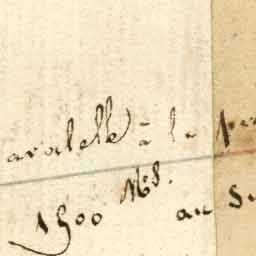 aralelle à la
1500 Mis. au